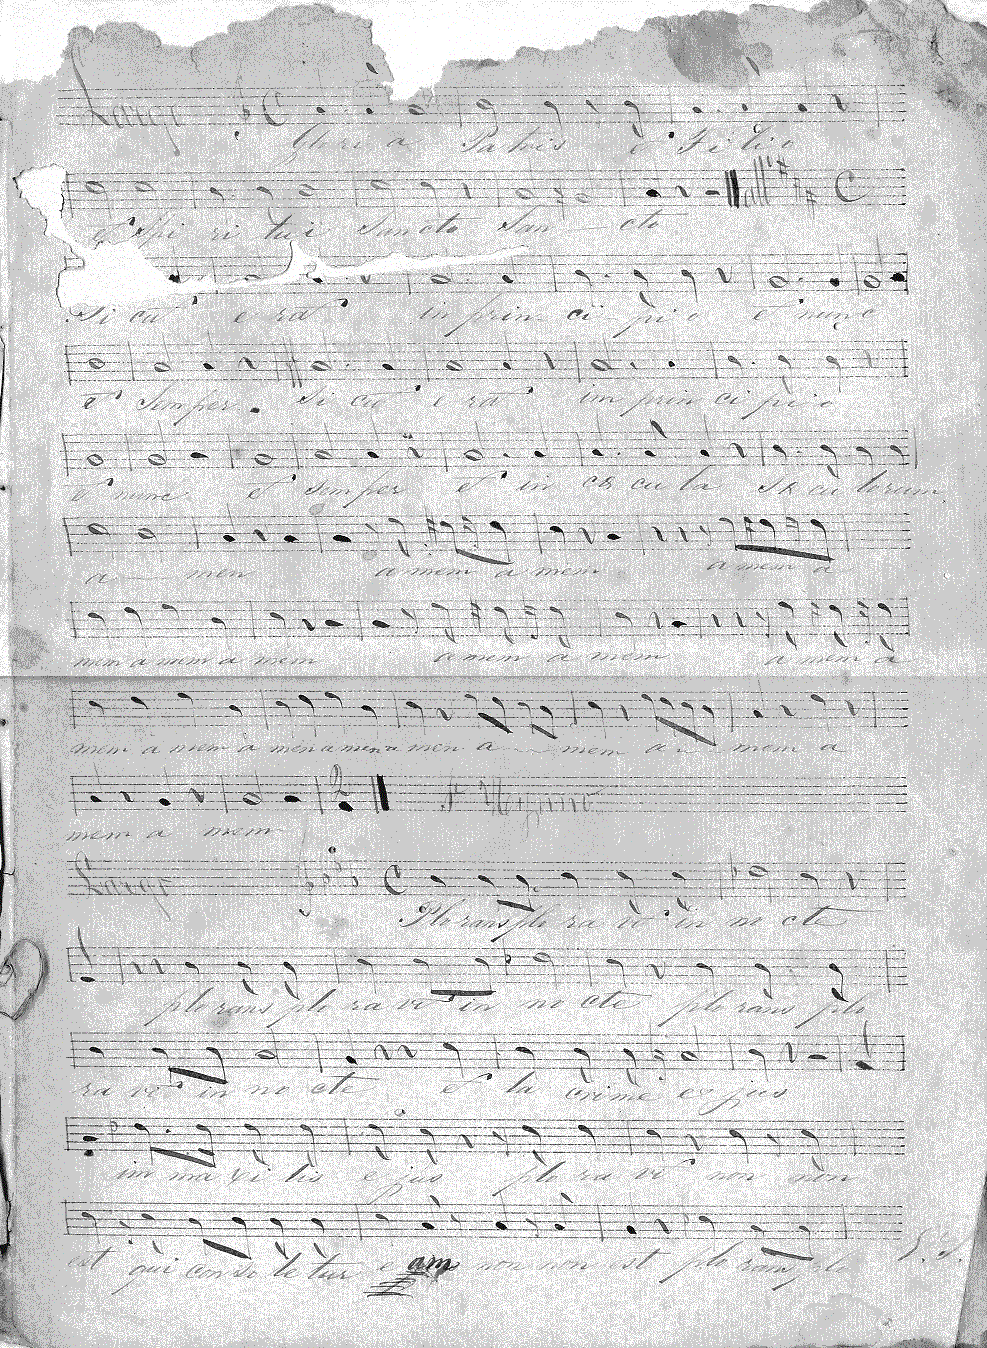 Largo
Glori a Patris et Filio
et Spi ri tui Sancto San cto
Si cut e rat in prin ci pi o et nunc
et Semper. Si cut e rat im prin ci pi o
et nunc et semper et in ce cu la se cu lorum
a men a mem a mem a mem a
mem a mem a mem a mem a mem a mem a
mem a mem a mem a mem a mem a mem a mem a
mem a mem
Largo
Plo rans plo ra vit in no cte
plo rans plo ra vit in no cte plo rans plo
ra vit in no cte et la crime e jus
im ma xi lis e jus plo ra vit non non
est qui con so le tur e am non non est plo rans plo